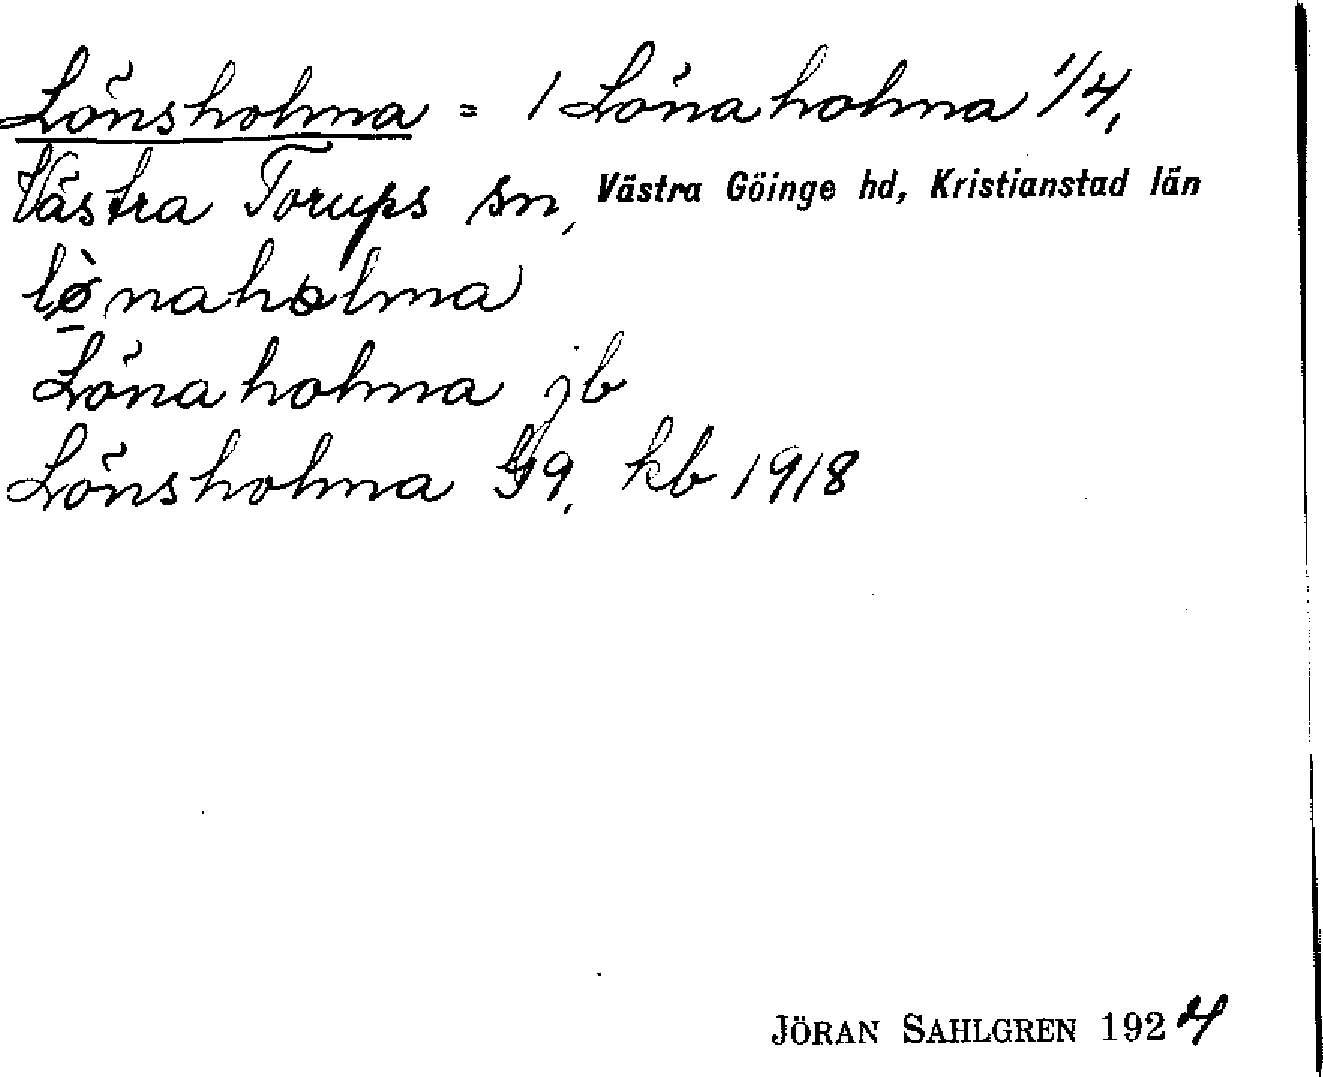 Lönsholma = 1 Lönaholma 1/4,
Västra Torups sn, Västra Göinge hd, Kristianstad län
lø̀naholma
Lönaholma jb
Lönsholma G9, kb 1918
JÖRAN SAHLGREN 1924